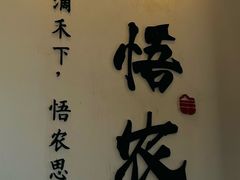 悟农
滴禾下，悟农思